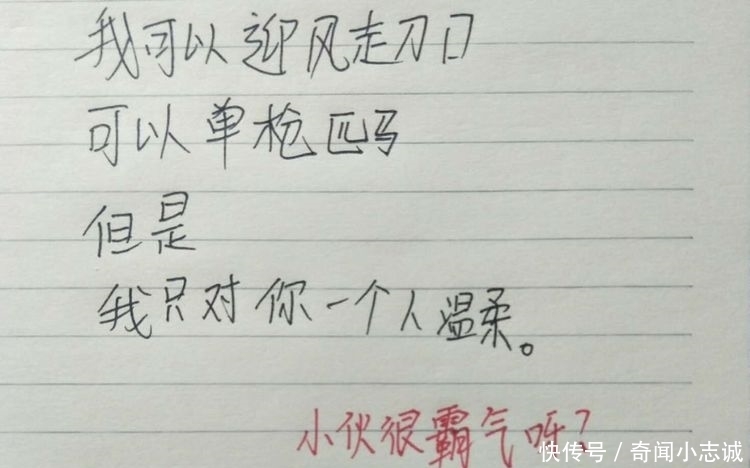 我可以迎风走刀口
可以单枪匹马
但是
我只对你一个人温柔。
小伙很霸气呀？
快传号／奇闻小志诚